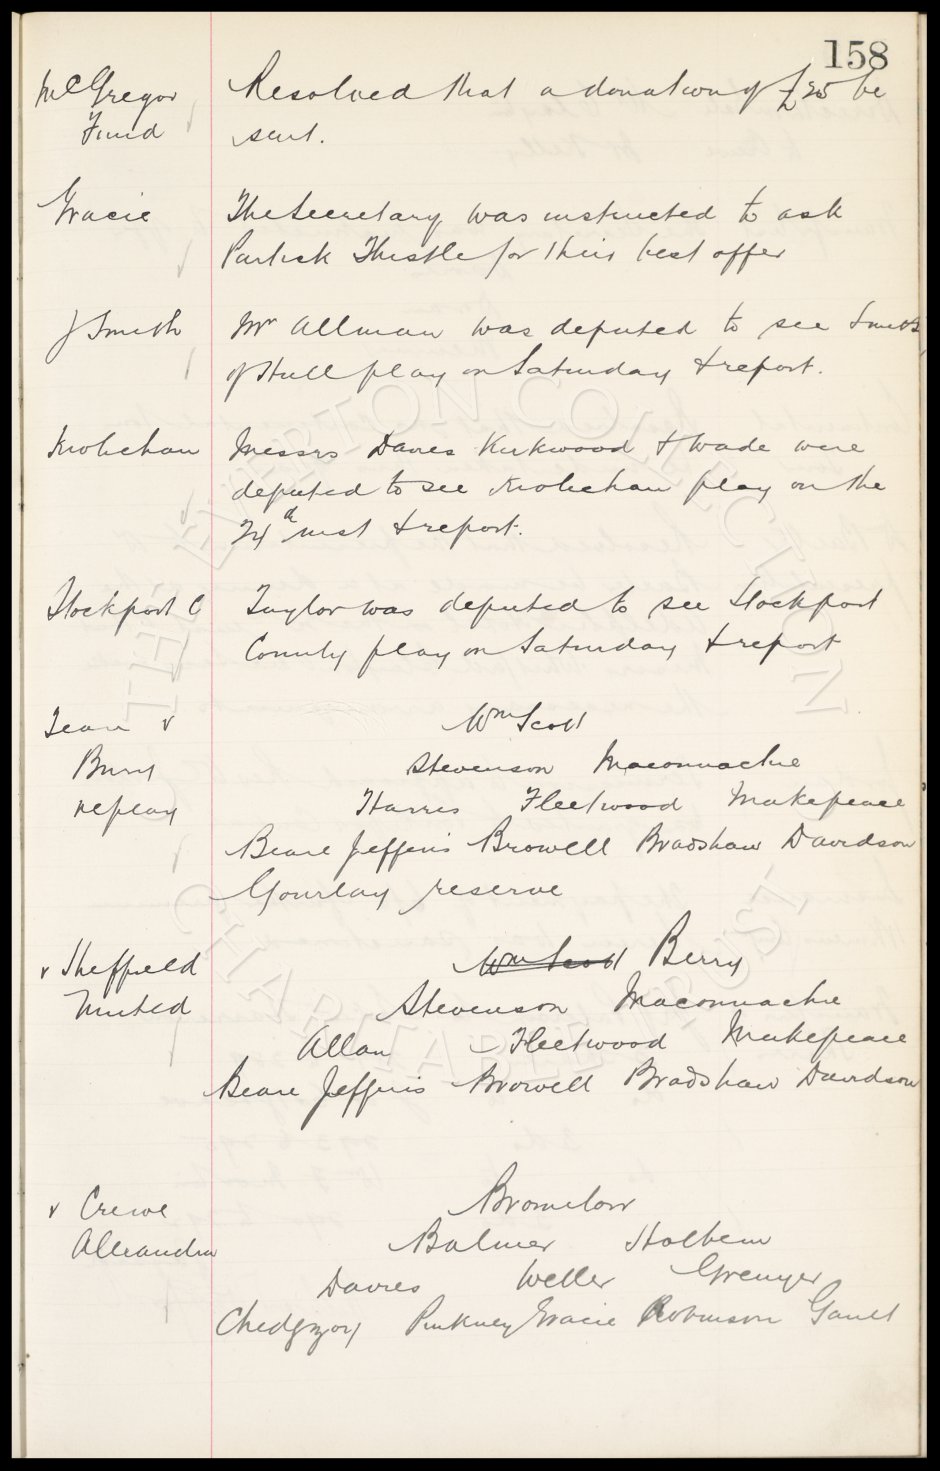 158
McGregor Fund
Resolved that a donation of £25 be
sent.
Gracie
The Secretary was instructed to ask
Partick Thistle for their best offer
J Smith
Mr Allman was deputed to see Smith
of Hull play on Saturday & report.
Messrs Davies Kirkwood & Wade were
deputed to see play on the
24th inst & report.
Stockport C
Taylor was deputed to see Stockport
County play on Saturday & report
Team v
Bury
replay
Wm Scott
Stevenson Maconnachie
Harris Fleetwood Makepeace
Beare Jefferis Browell Bradshaw Davidson
Gourlay reserve
v Sheffield
United
Wm Scott Berry
Stevenson Maconnachie
Allan Fleetwood Makepeace
Beare Jefferis Browell Bradshaw Davidson
v Crewe
Alexandra
Bromilow
Balmer Holbem
Davies Weller Grenyer
Chedgzoy Pinkney Gracie Robinson Gault
THE EVERTON COLLECTION
CHARITABLE TRUST